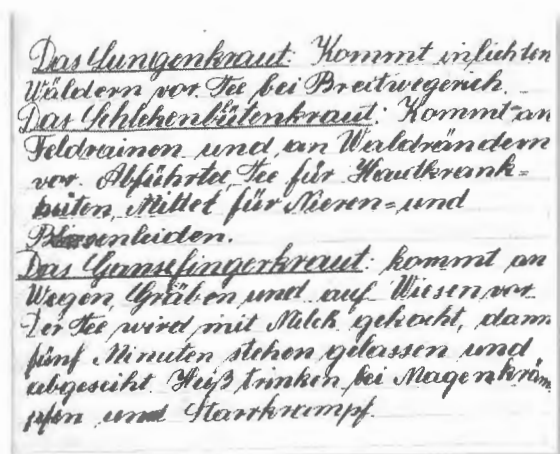 Das Lungenkraut: Kommt in lichten
Wäldern vor. Tee bei Breitwegerich.
Das Schlehenblütenkraut: Kommt an
Feldrainen und an Waldrändern
vor. Abführtee, Tee für Hautkrank=
heiten, Mittel für Nieren= und
Blasenleiden.
Das Gänsefingerkraut: kommt an
Wegen, Gräben und auf Wiesen vor.
Der Tee wird mit Milch gekocht, dann
fünf Minuten stehen gelassen und
abgeseiht. Heiß trinken bei Magenkräm
pfen und Starrkrampf.